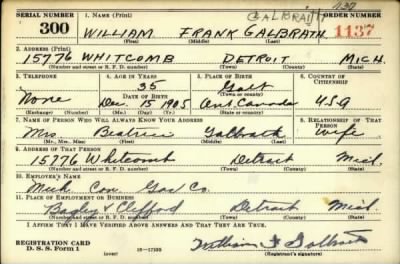 1137
SERIAL NUMBER 1. NAME (Print) GALBRAITH ORDER NUMBER
300 WILLIAM FRANK GALBRATH 1137
(First) (Middle) (Last)
2. ADDRESS (Print)
15776 WHITCOMB DETROIT MICH.
(Number and street or R. F. D. number) (Town) (County) (State)
3. TELEPHONE 4. AGE IN YEARS 5. PLACE OF BIRTH 6. COUNTRY OF CITIZENSHIP
35 Galt
None DATE OF BIRTH (Town or county)
Dec. 15 1905 Ont. Canada USA
(Exchange) (Number) (Mo.) (Day) (Yr.) (State or country)
7. NAME OF PERSON WHO WILL ALWAYS KNOW YOUR ADDRESS 8. RELATIONSHIP OF THAT PERSON
Mrs Beatrice Galbrath Wife
(Mr., Mrs., Miss) (First) (Middle) (Last)
9. ADDRESS OF THAT PERSON
15776 Whitcomb Detroit Mich.
(Number and street or R. F. D. number) (Town) (County) (State)
10. EMPLOYER'S NAME
Mich Con. Gas Co.
11. PLACE OF EMPLOYMENT OR BUSINESS
Bagley & Clifford Detroit Mich.
(Number and street or R. F. D. number) (Town) (County) (State)
I AFFIRM THAT I HAVE VERIFIED ABOVE ANSWERS AND THAT THEY ARE TRUE.
REGISTRATION CARD
D. S. S. Form 1 16—17105 William F Galbrath
(over) (Registrant's signature)